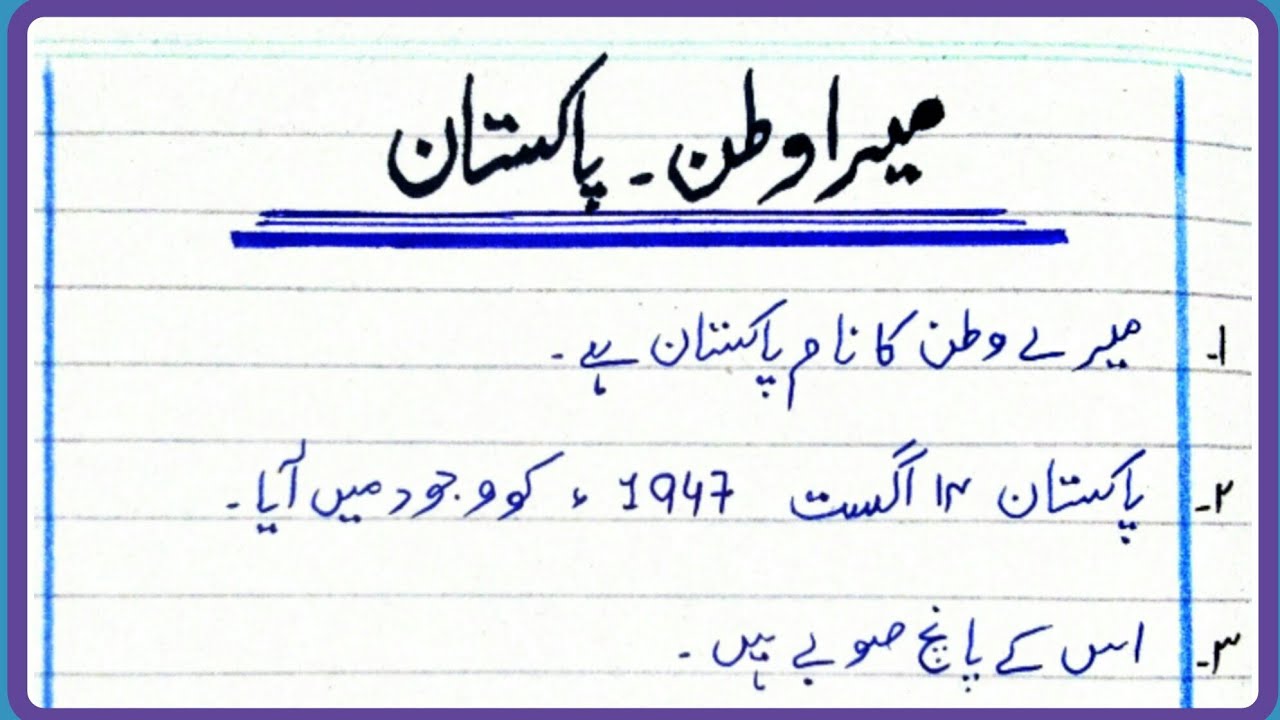 میرا وطن ۔ پاکستان
۱۔ میرے وطن کا نام پاکستان ہے ۔
۲۔ پاکستان ۱۴ اگست 1947 ء کو وجود میں آیا ۔
۳۔ اس کے پانچ صوبے ہیں ۔